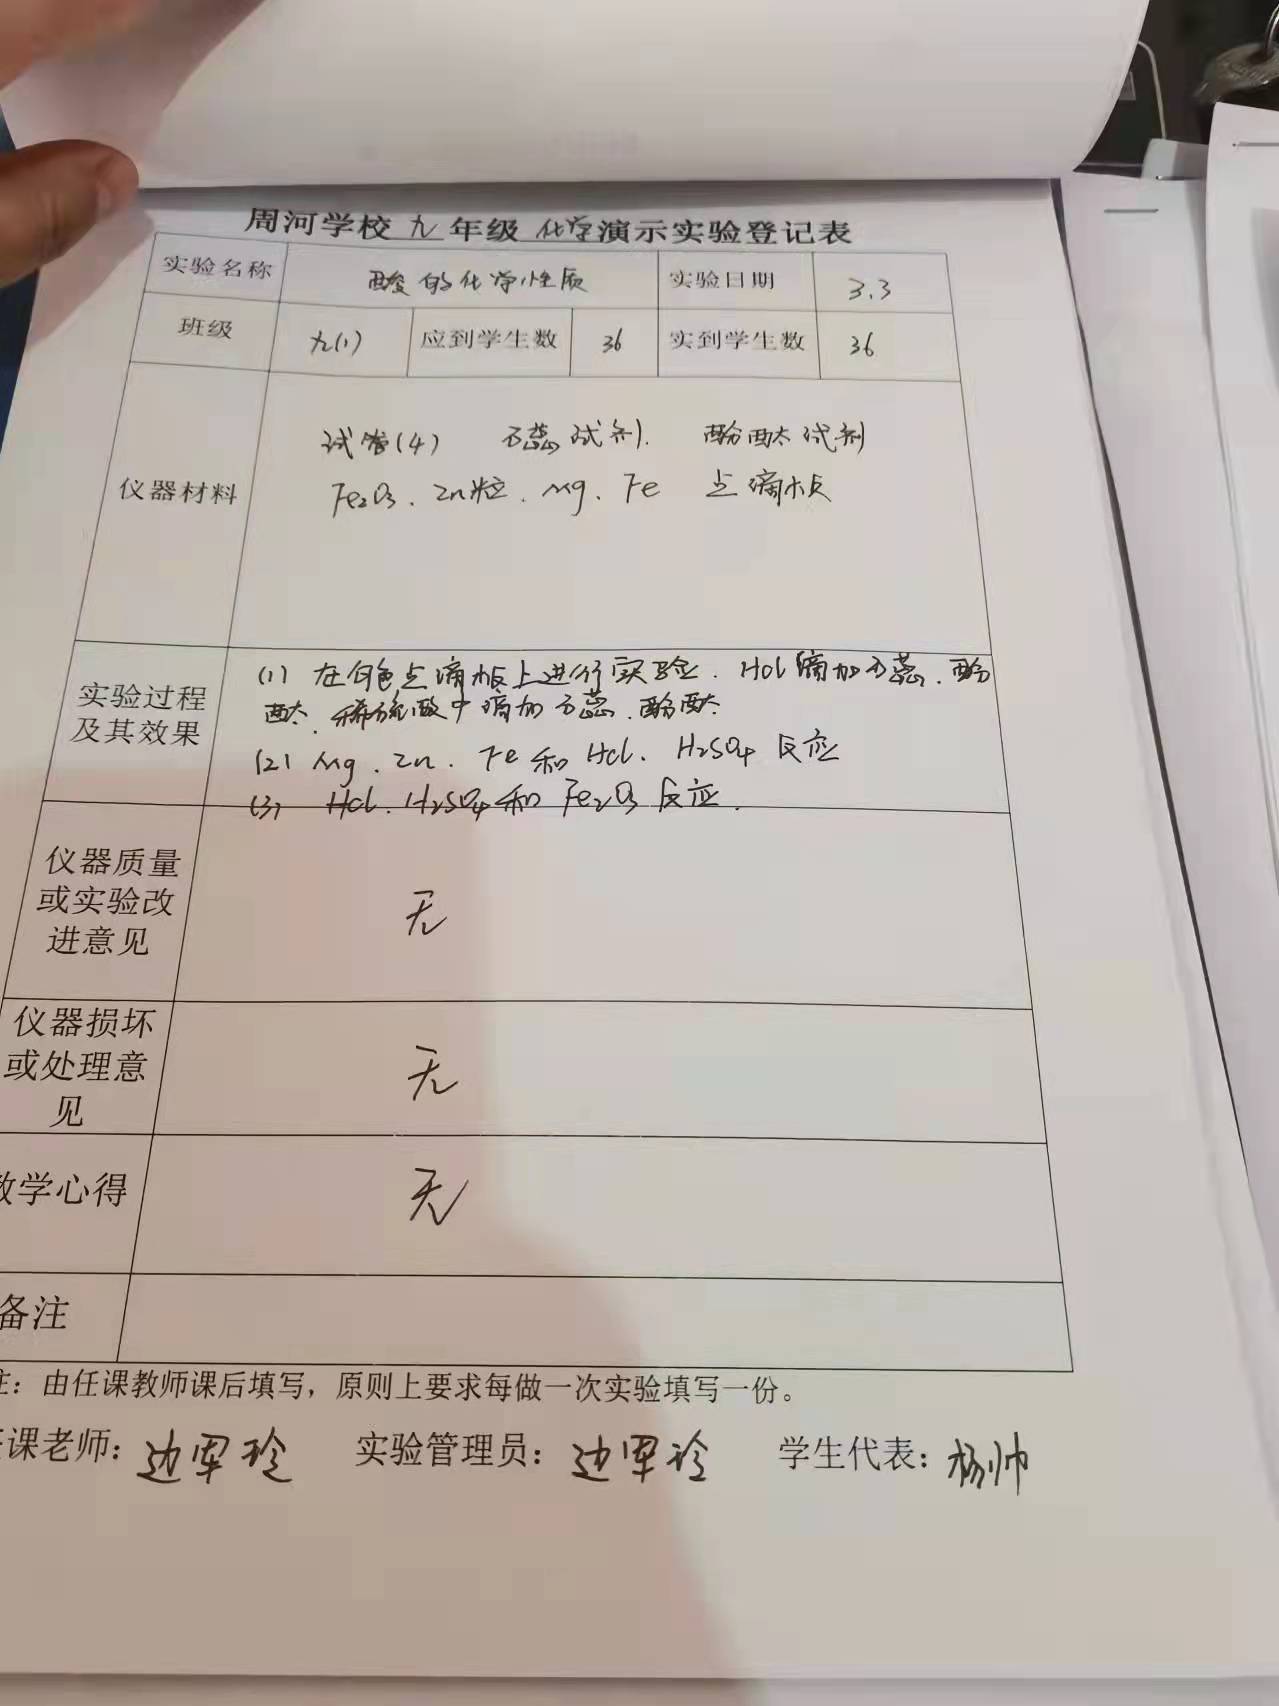 周河学校 九 年级 化学演示实验登记表
实验名称 酸的化学性质 实验日期 3.3
班级 九(1) 应到学生数 36 实到学生数 36
试管(4) 石蕊试剂. 酚酞试剂
仪器材料 Fe2O3、Zn粒、Mg、Fe 点滴板
(1) 在白色点滴板上进行实验. Hcl滴加石蕊、酚
酞、稀硫酸中滴加石蕊、酚酞
实验过程
及其效果
(2) Mg、Zn、Fe和Hcl、H2SO4反应
(3) Hcl、H2SO4和Fe2O3反应.
仪器质量
或实验改
进意见
无
仪器损坏
或处理意
见
无
教学心得 无
备注
注：由任课教师课后填写，原则上要求每做一次实验填写一份。
任课老师: 边军玲 实验管理员: 边军玲 学生代表: 杨帅